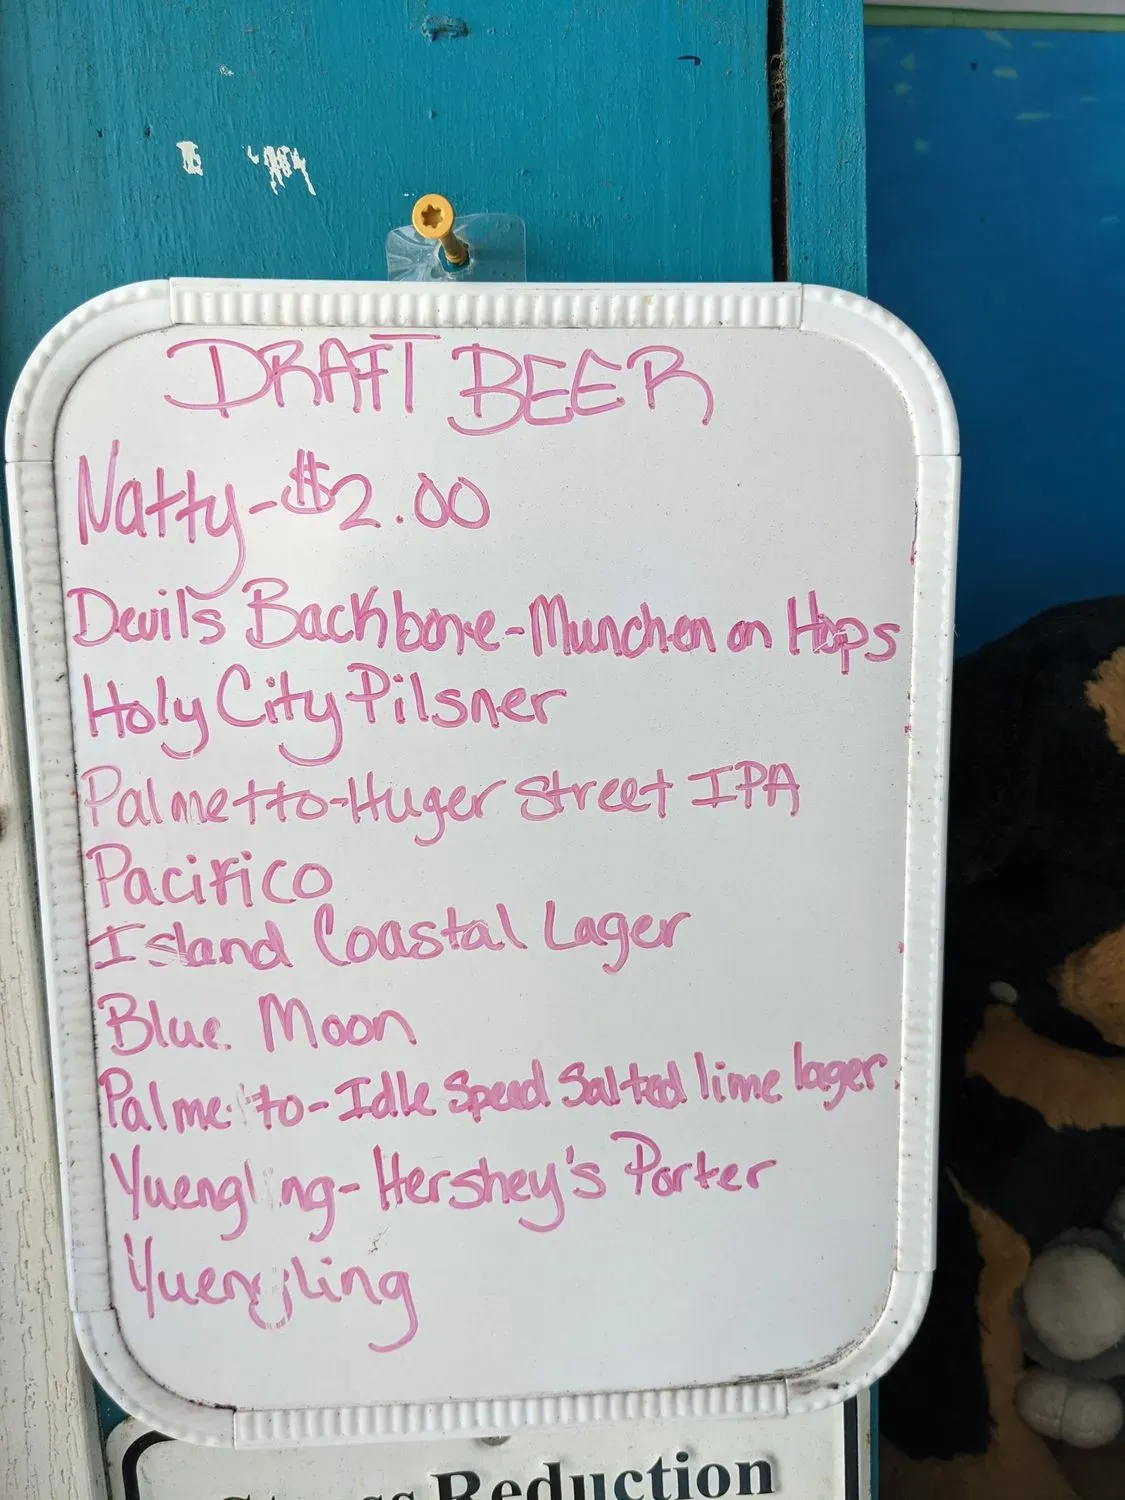 DRAFT BEER
Natty-$2.00
Devil's Backbone-Munchen on Hops
Holy City Pilsner
Palmetto-Huger Street IPA
Pacifico
Island Coastal Lager
Blue Moon
Palmetto-Idle Speed Salted lime lager
Yuengling-Hershey's Porter
Yuengling
Reduction